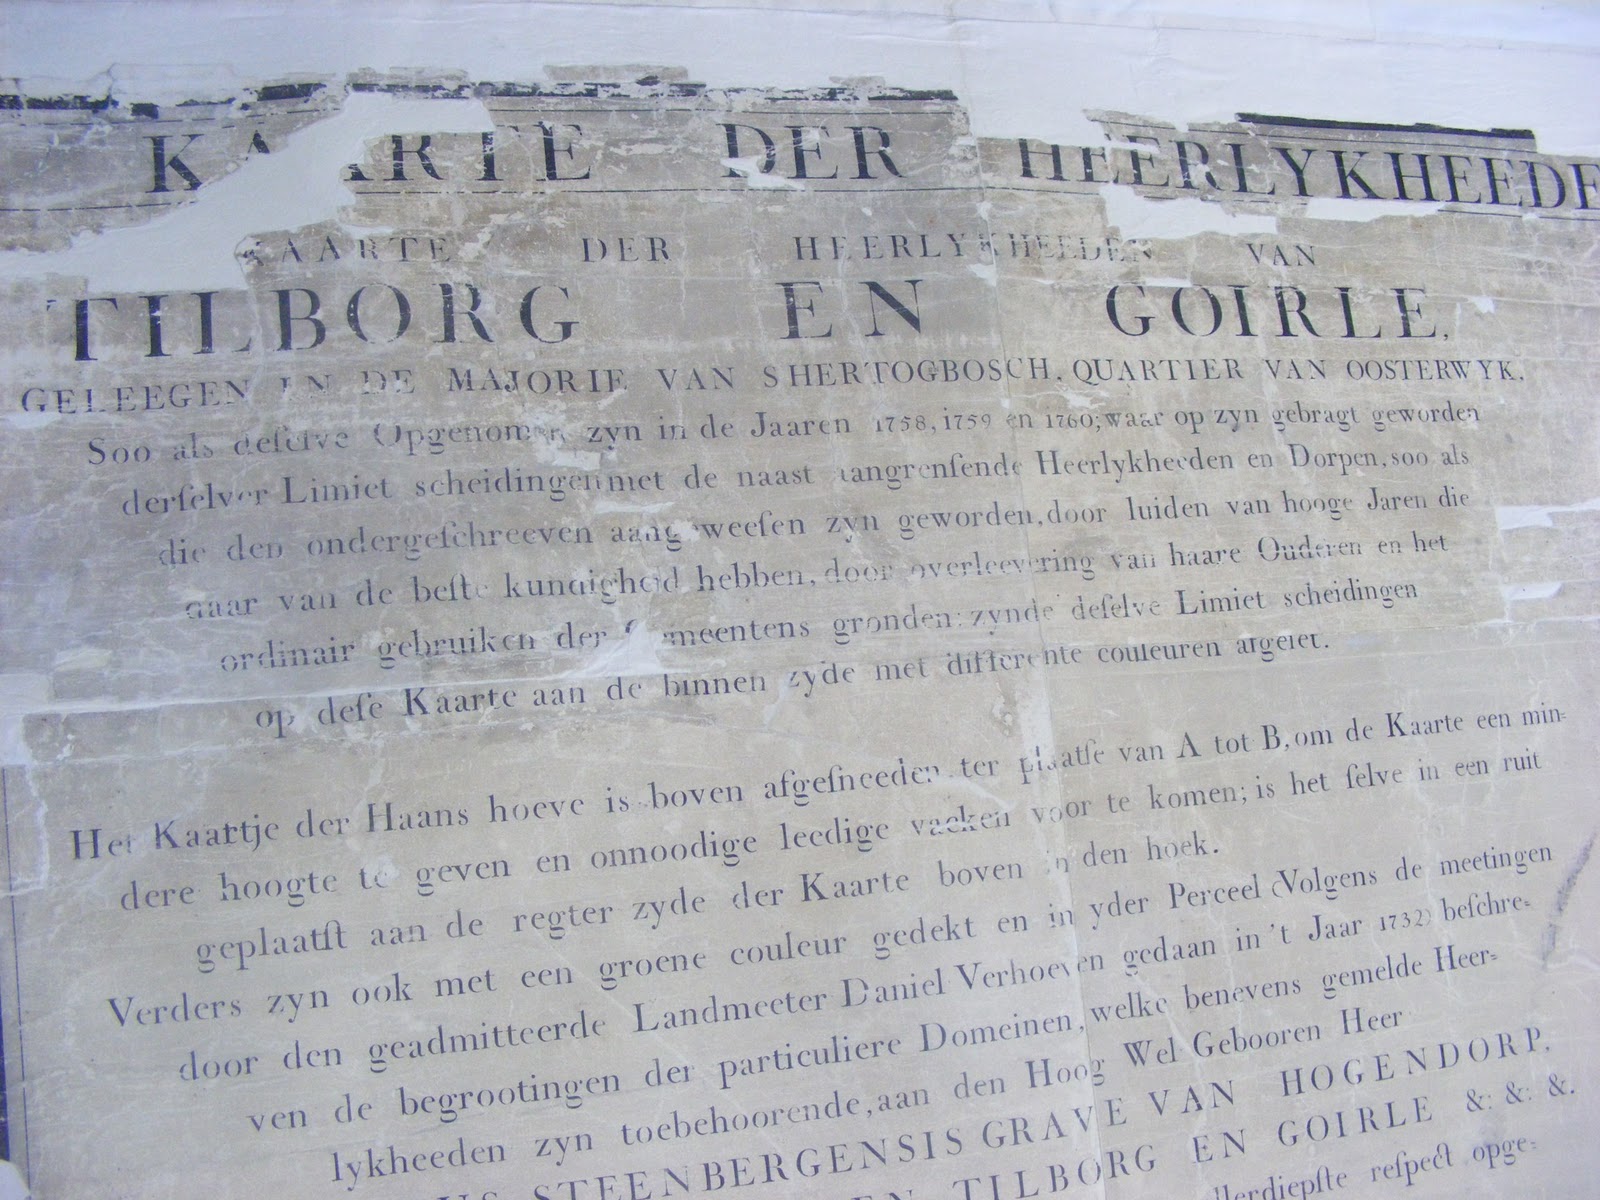 KAARTE DER HEERLYKHEEDE
KAARTE DER HEERLYKHEEDEN VAN
TILBORG EN GOIRLE,
GELEEGEN IN DE MAJORIE VAN SHERTOGBOSCH, QUARTIER VAN OOSTERWYK,
Soo als deſelve Opgenomen zyn in de Jaaren 1758, 1759 en 1760; waar op zyn gebragt geworden
derſelver Limiet scheidingen met de naast aangrenſende Heerlykheeden en Dorpen, soo als
die den ondergeſchreeven aangeweeſen zyn geworden, door luiden van hooge Jaren die
daar van de beſte kundigheid hebben, door overleevering van haare Ouderen en het
ordinair gebruiken der Gemeentens gronden: zynde deſelve Limiet scheidingen
op deſe Kaarte aan de binnen zyde met differente couleuren afgeſet.
Het Kaartje der Haans hoeve is boven afgeſneeden ter plaatſe van A tot B, om de Kaarte een min=
dere hoogte te geven en onnoodige leedige vacken voor te komen; is het ſelve in een ruit
geplaatſt aan de regter zyde der Kaarte boven in den hoek.
Verders zyn ook met een groene couleur gedekt en in yder Perceel (Volgens de meetingen
door den geadmitteerde Landmeeter Daniel Verhoeven gedaan in 't Jaar 1732) beſchre=
ven de begrootingen der particuliere Domeinen, welke benevens gemelde Heer=
lykheeden zyn toebehoorende, aan den Hoog Wel Gebooren Heer
STEENBERGENSIS GRAVE VAN HOGENDORP,
TILBORG EN GOIRLE &: &: &.
reſpect opge=